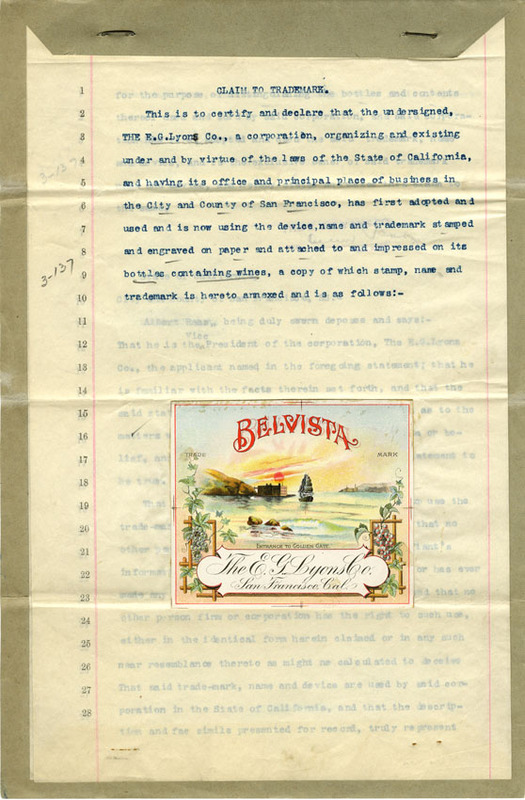 1 CLAIM TO TRADEMARK.
2 This is to certify and declare that the undersigned,
3 THE E.G.Lyons Co., a corporation, organizing and existing
4 under and by virtue of the laws of the State of California,
5 and having its office and principal place of business in
6 the City and County of San Francisco, has first adopted and
7 used and is now using the device,name and trademark stamped
8 and engraved on paper and attached to and impressed on its
9 bottles containing wines, a copy of which stamp, name and
10 trademark is hereto annexed and is as follows:-
3-137
3-137
11 being duly sworn deposes and says:-
Vice
12 That he is the President of the corporation, The E.G.Lyons
13 Co., the applicant named in the foregoing statement; that he
14 is familiar with the facts therein set forth, and that the
15 said as to the
16 matters or be-
17 lief, and statement is
18 be true.
19 That use the
20 trade-mark that no
21 other
22 or has ever
23 made any that no
24 other person firm or corporation has the right to such use,
25 either in the identical form herein claimed or in any such
26 near resemblance thereto as might be calculated to deceive
27 That said trade-mark, name and device are used by said cor-
28 poration in the State of California, and that the descrip-
tion and fac simile presented for record, truly represent
BELVISTA
TRADE MARK
ENTRANCE TO GOLDEN GATE.
The E. G. Lyons Co.
San Francisco, Cal.